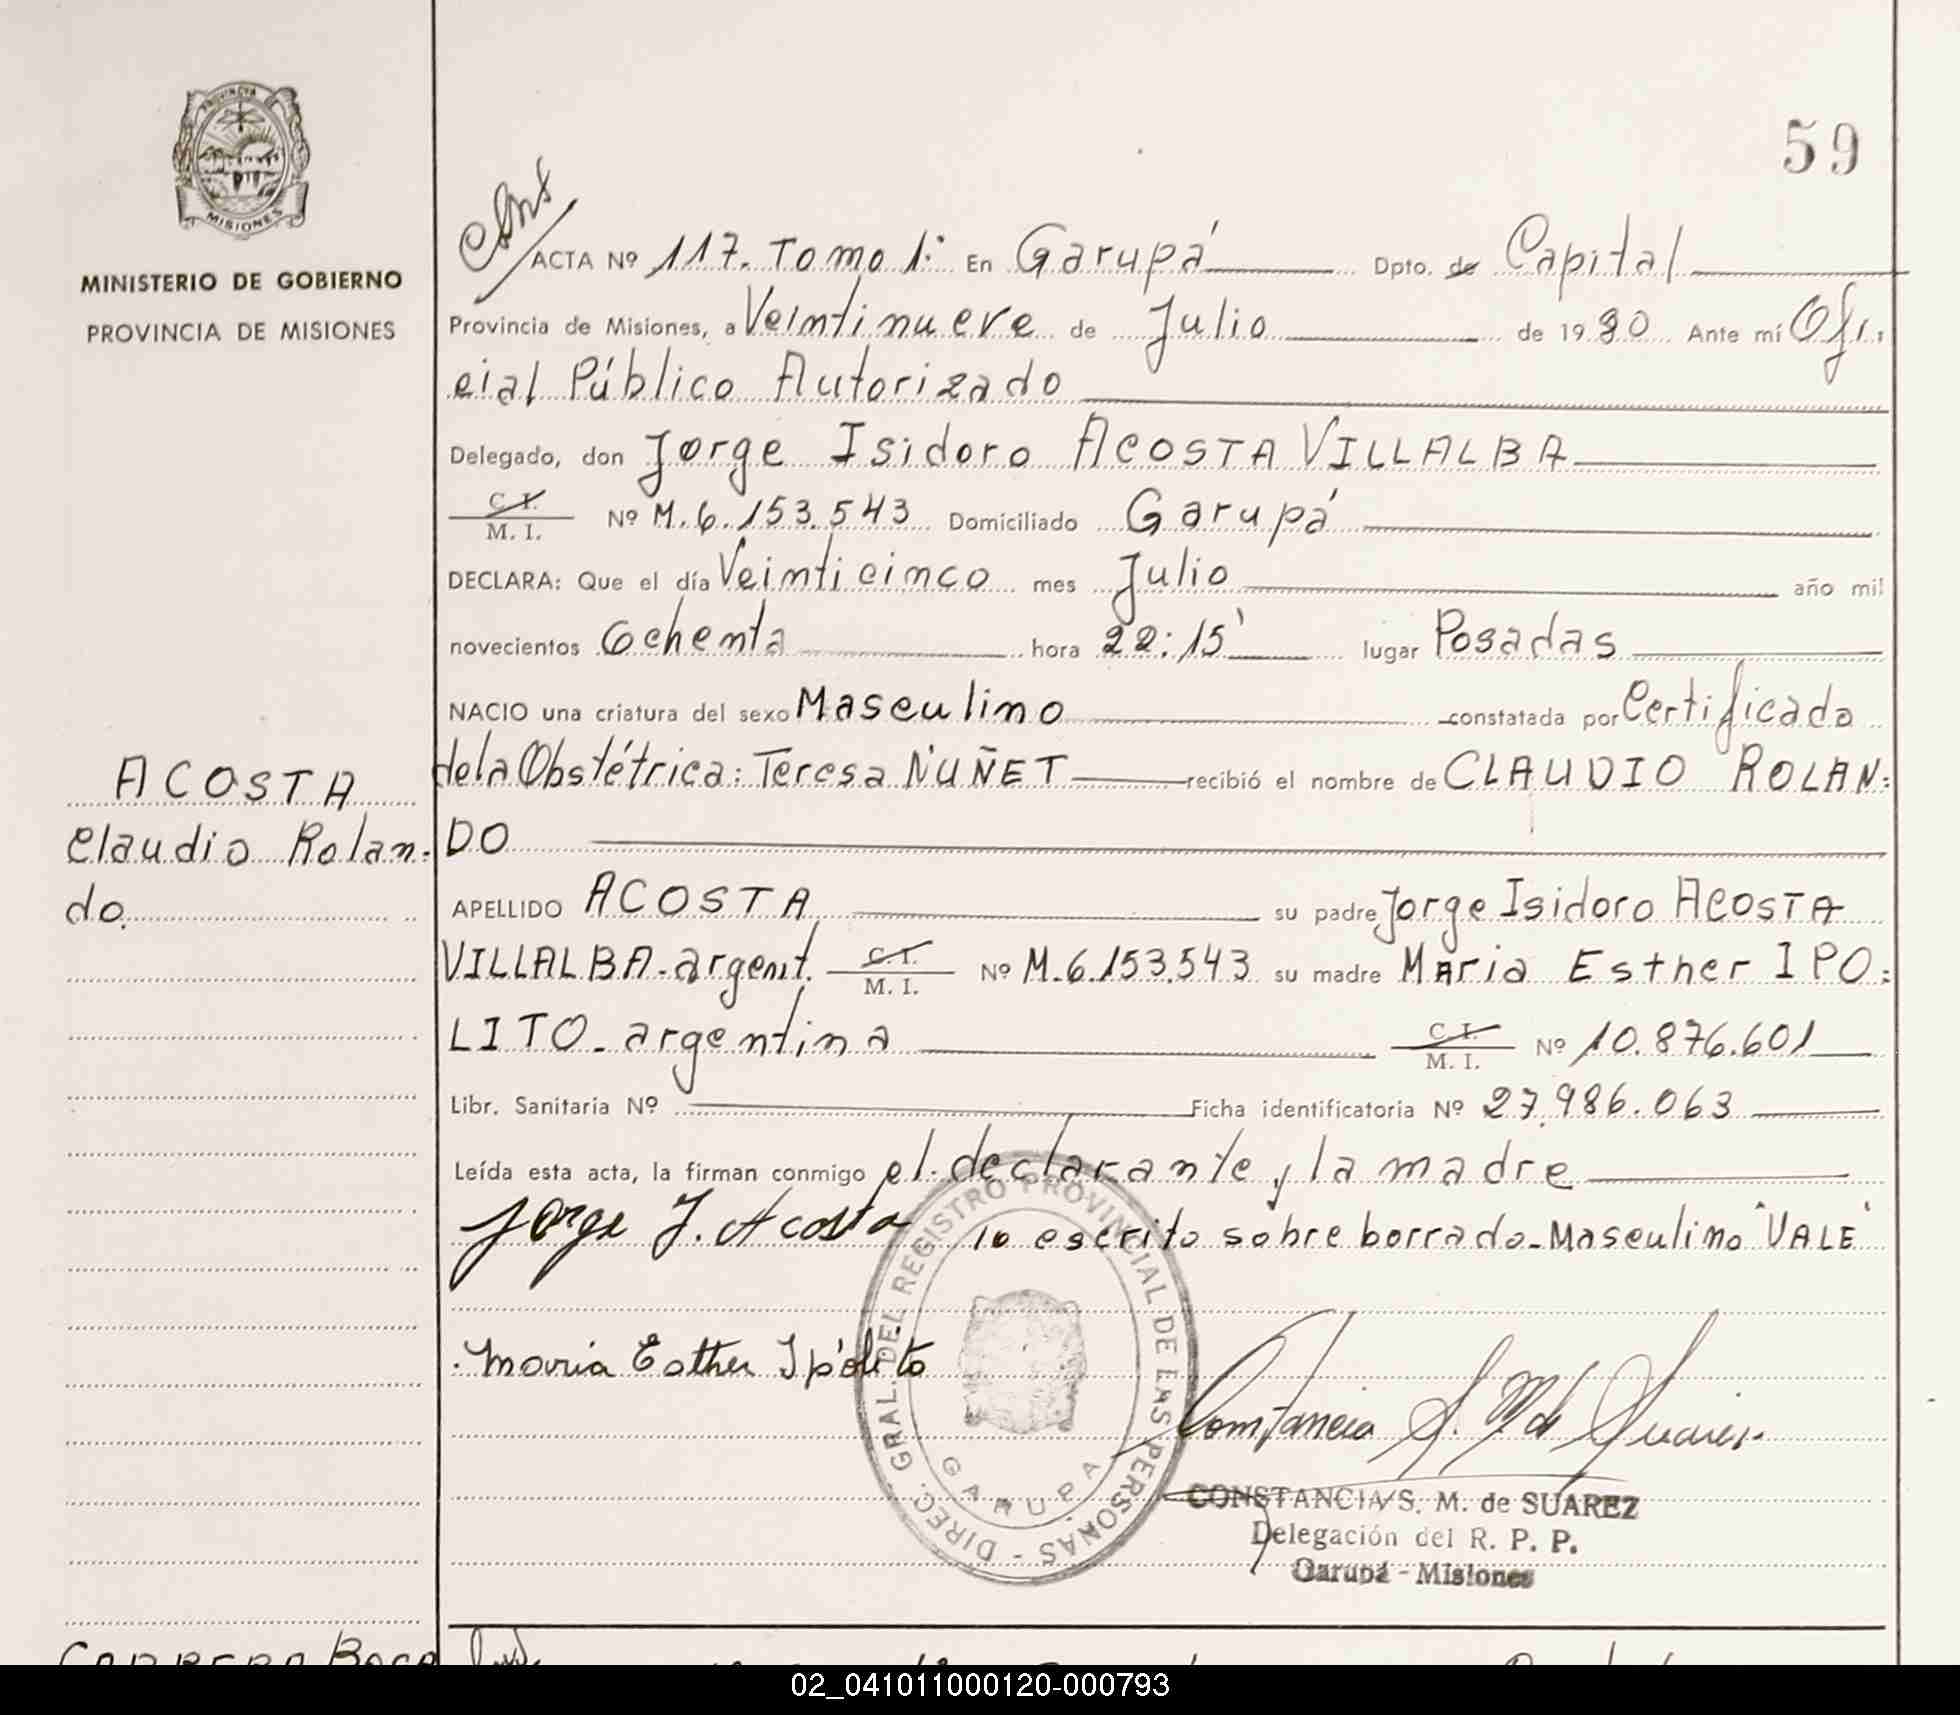 PROVINCIA
MISIONES
MINISTERIO DE GOBIERNO
PROVINCIA DE MISIONES
59
ACTA Nº 117. Tomo 1: En Garupá Dpto. de Capital
Provincia de Misiones, a Veintinueve de Julio de 1980 Ante mí Ofi-
cial Público Autorizado
Delegado, don Jorge Isidoro ACOSTA VILLALBA
C. I.
M. I. Nº M. 6.153.543 Domiciliado Garupá
DECLARA: Que el día Veinticinco mes Julio año mil
novecientos Ochenta hora 22:15' lugar Posadas
NACIO una criatura del sexo Masculino constatada por Certificado
de la Obstétrica: Teresa NUÑET recibió el nombre de CLAUDIO ROLAN-
DO
ACOSTA
Claudio Rolan-
do.
APELLIDO ACOSTA su padre Jorge Isidoro ACOSTA
VILLALBA-argent. C. I. M. I. Nº M.6.153.543 su madre María Esther IPO-
LITO-argentina C. I. M. I. Nº 10.876.601
Libr. Sanitaria Nº Ficha identificatoria Nº 27.986.063
Leída esta acta, la firman conmigo el declarante y la madre
Jorge I. Acosta lo escrito sobre borrado-Masculino "VALE"
Maria Esther Ipólito
DIREC. GRAL. DEL REGISTRO PROVINCIAL DE LAS PERSONAS -
GARUPA
Constancia S. M. de Suarez
CONSTANCIA S. M. de SUAREZ
Delegación del R. P. P.
Garupá - Misiones
02_041011000120-000793